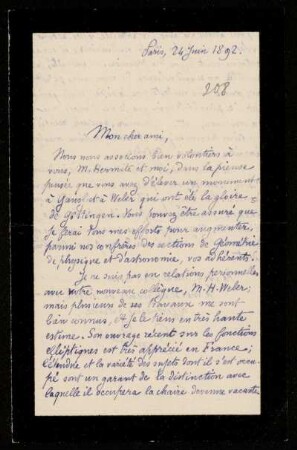 Paris, 24 Juin 1892.
208
Mon cher ami,
Nous nous associons bien volontiers à
vous, M. Hermite et moi, dans la pieuse
pensée que vous avez d'élever un monument
à Gauss et à Weber qui ont été la gloire
de Göttingen. Vous pouvez être assuré que
je ferai tous mes efforts pour augmenter,
parmi nos confrères des sections de Géométrie
de physique et d'astronomie, vos adhérents.
Je ne suis pas en relations personnelles
avec votre nouveau collègue, M. H. Weber;
mais plusieurs de ses travaux me sont
bien connus, et je le tiens en très haute
estime. Son ouvrage récent sur les fonctions
elliptiques est très apprécié en France;
l'étendue et la variété des sujets dont il s'est occu-
pé sont un garant de la distinction avec
laquelle il occupera la chaire devenue vacante